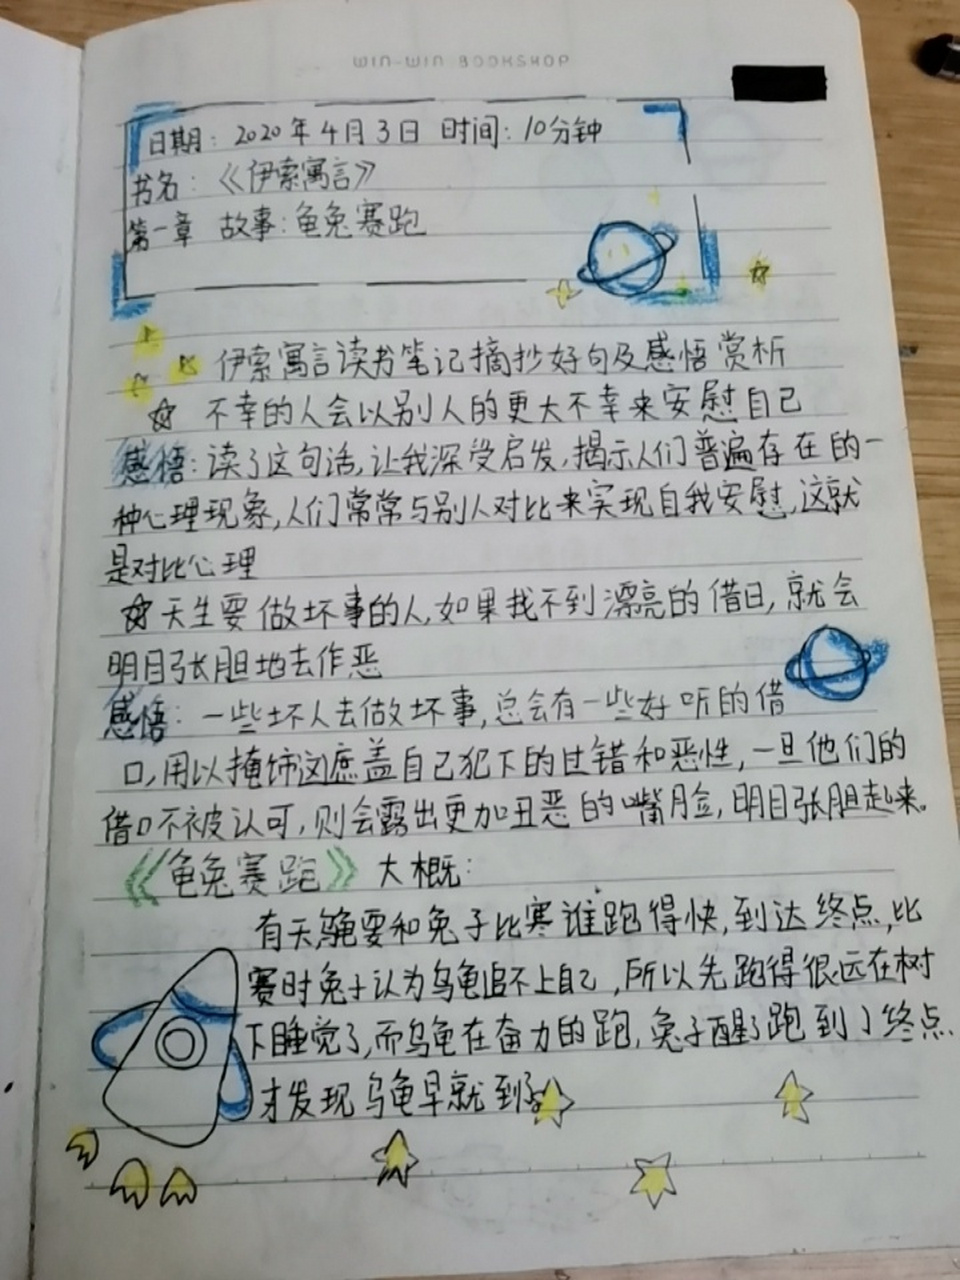 WIN-WIN BOOKSHOP
日期：2020年4月3日 时间：10分钟
书名：《伊索寓言》
第一章 故事：龟兔赛跑
伊索寓言读书笔记摘抄好句及感悟赏析
不幸的人会以别人的更大不幸来安慰自己
感悟：读了这句话，让我深受启发，揭示人们普遍存在的一
种心理现象，人们常常与别人对比来实现自我安慰，这就
是对比心理
天生要做坏事的人，如果找不到漂亮的借口，就会
明目张胆地去作恶
感悟：一些坏人去做坏事，总会有一些好听的借
口，用以掩饰这遮盖自己犯下的过错和恶性，一旦他们的
借口不被认可，则会露出更加丑恶的嘴脸，明目张胆起来。
《龟兔赛跑》大概：
有天，龟要和兔子比赛谁跑得快，到达终点，比
赛时兔子认为乌龟追不上自己，所以先跑得很远在树
下睡觉了，而乌龟在奋力的跑，兔子醒了跑到了终点
才发现乌龟早就到了